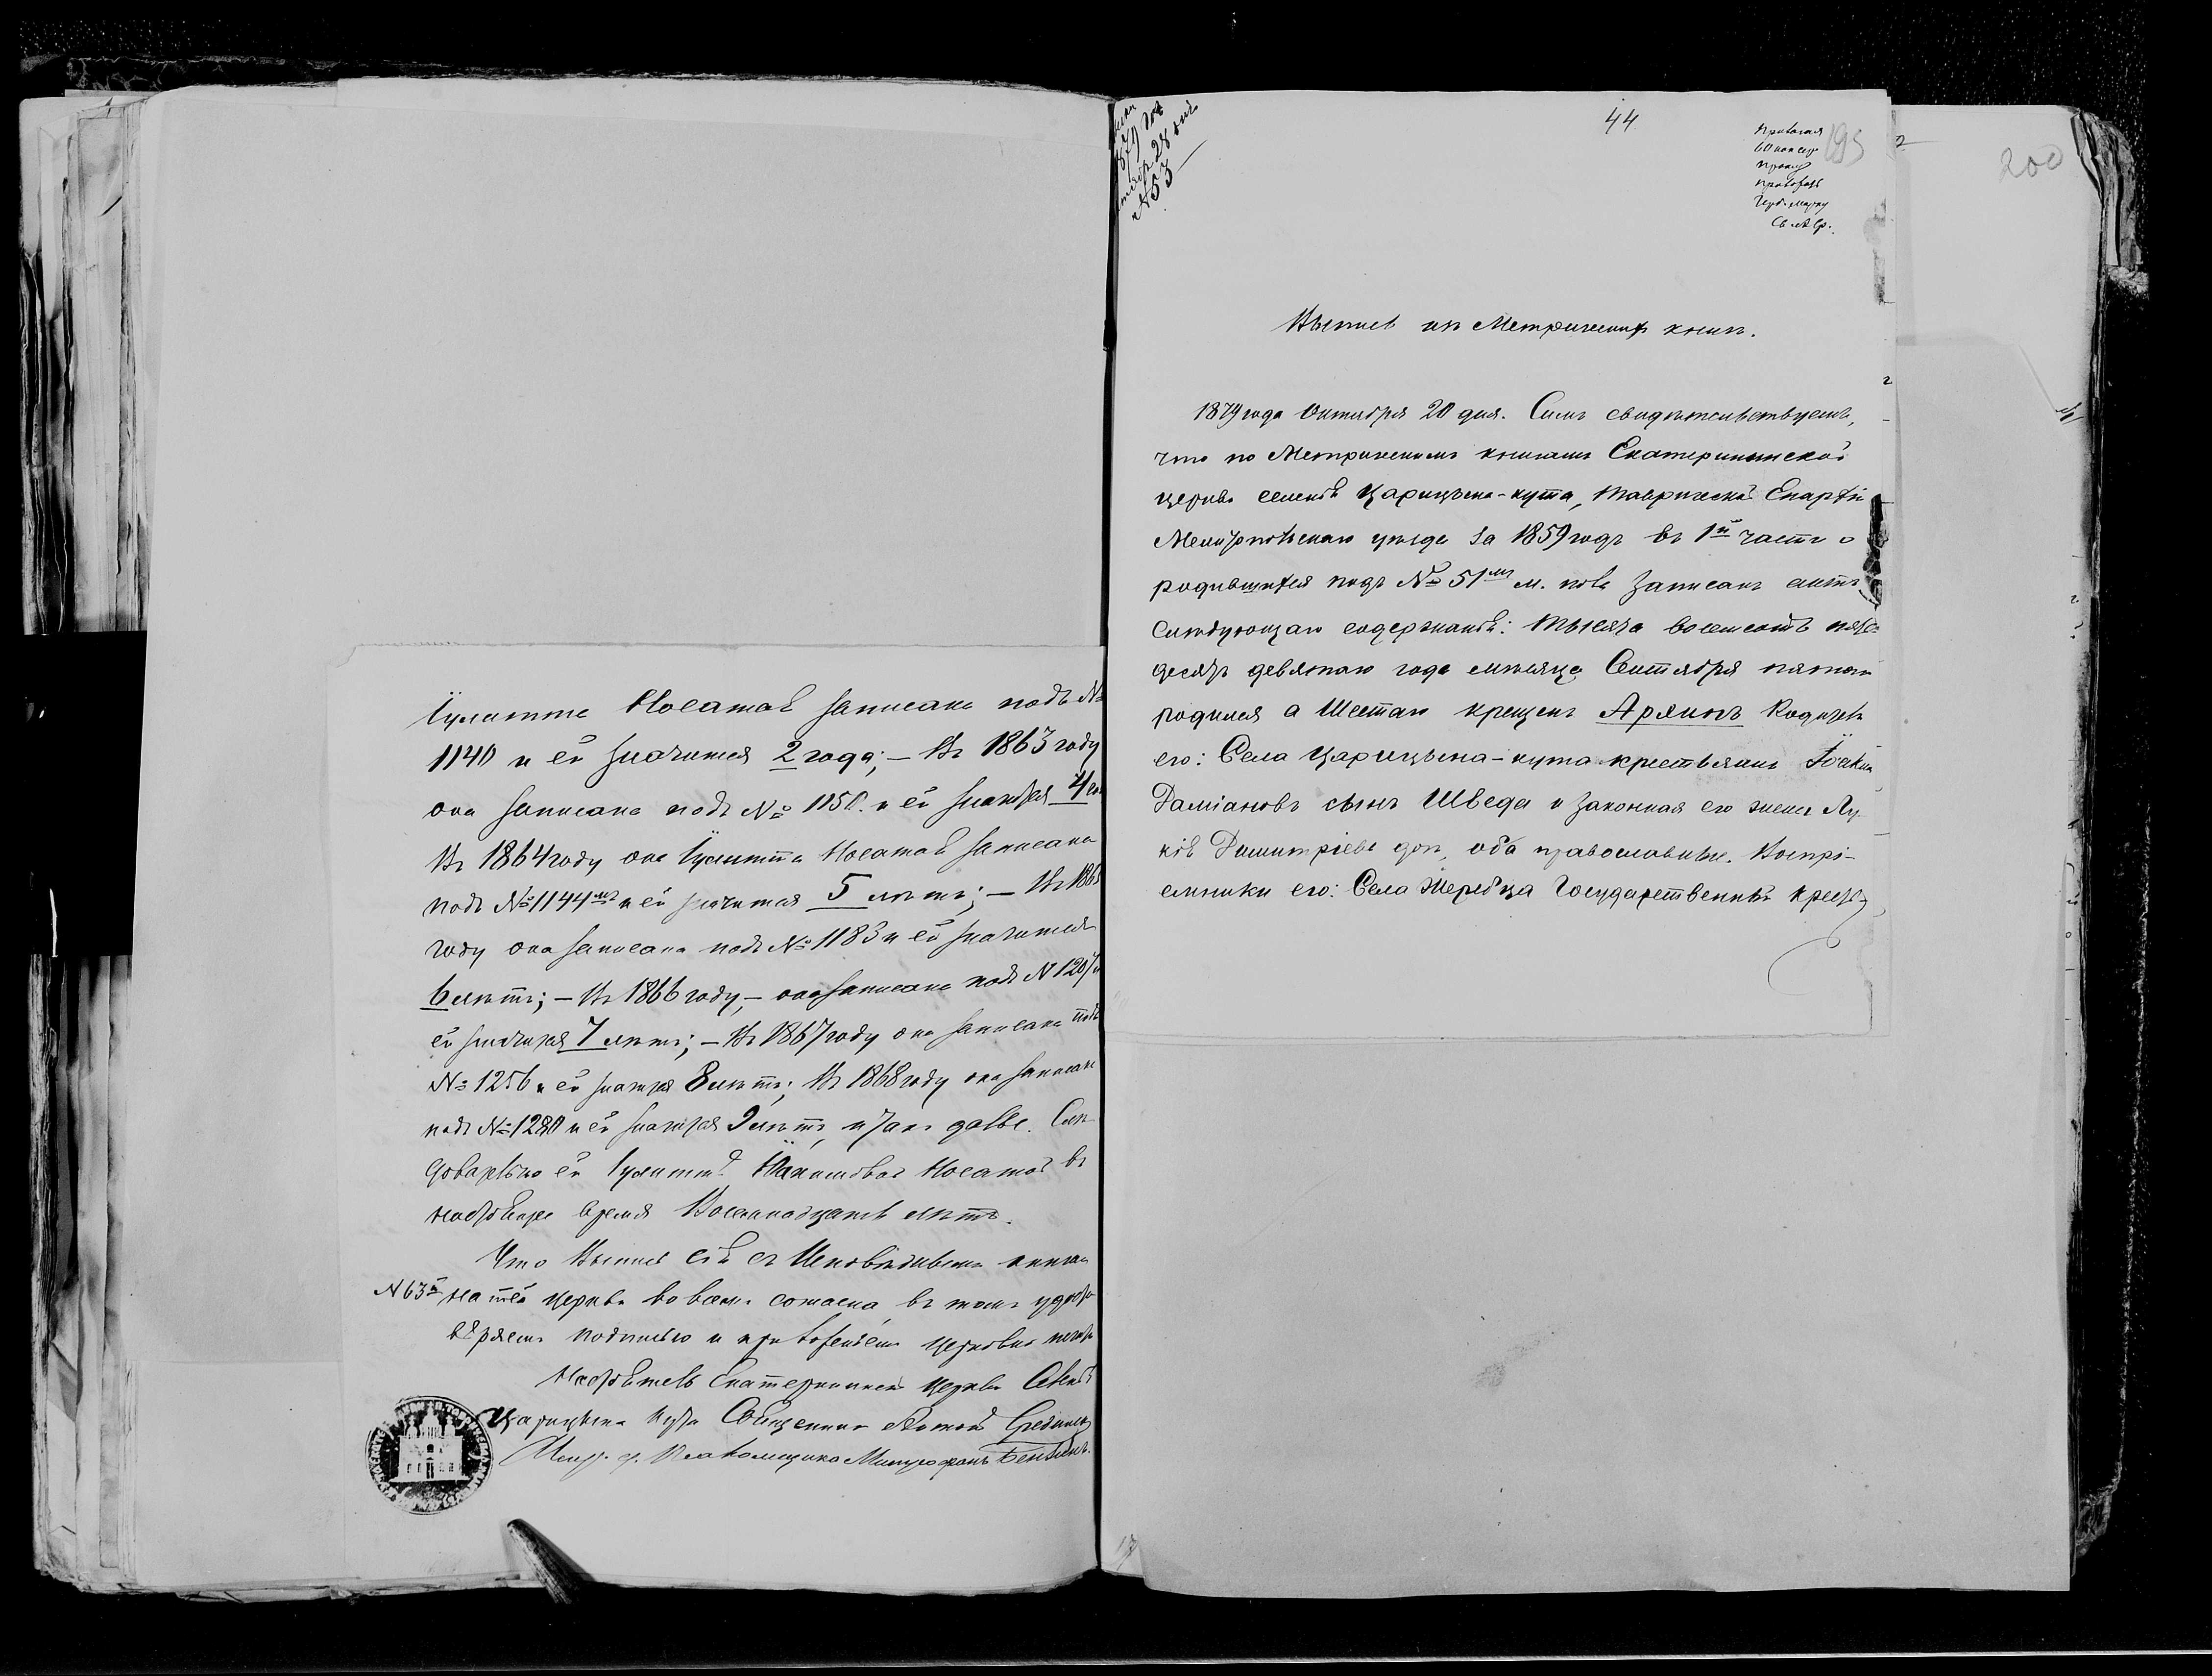 Іулитта Носатая записана подъ №
1140 и ей значится 2 года; – Въ 1863 году
она записана подъ № 1150. и ей значится 4
Въ 1864 году она Іулитта Носатая записана
подъ № 1144мъ и ей значится 5 лѣтъ; – Въ 186
году она записана подъ № 1183 и ей значится
6 лѣтъ; – Въ 1866 году, – она записана подъ № 1207 и
ей значится 7 лѣтъ; – Въ 1867 году она записана подъ
№ 1256 и ей значится 8 лѣтъ; Въ 1868 году она записана
подъ № 1280 и ей значится 9 лѣтъ, и такъ далѣе. Слѣ-
довательно ей Іулиттѣ Носатой въ
настоящее время Восемнадцать лѣтъ.
Что Выпись сія съ Исповѣдными книгами
№ 63й на шей церкви во всемъ согласна, въ томъ удосто-
вѣряемъ подписью и приложеніемъ церковной печати
Настоятель Екатерининской церкви Селенія
Царицына Кута Священникъ
Испр. д. Псаломщика Митрофанъ
44
195
200
1879 года
28 дня
№ 53
Гербъ марку
Выпись изъ Метрическихъ книгъ.
1879 года Октября 20 дня. Симъ свидѣтельствуемъ,
что по Метрическимъ книгамъ Екатерининской
церкви селенія Царицына-кута, Таврической Епархіи
Мелитопольскаго уѣзда за 1859 годъ въ 1й части о
родившихся подъ № 51мъ м. пола записанъ актъ
слѣдующаго содержанія: Тысяча восемсотъ пять-
десятъ девятаго года мѣсяца Сентября пятаго
родился а Шестаго крещенъ Родители
его: Села Царицына-кута крестьянинъ
Даміановъ сынъ Шведа и законная его жена Лу-
кія Димитріева доч, оба православные. Воспрі-
емники его: Села Жеребца Государственный крест